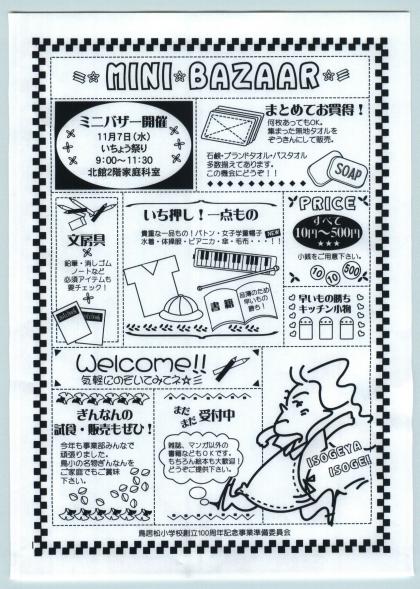 MINI☆BAZAAR
ミニバザー開催
11月7日(水)
いちょう祭り
9:00〜11:30
北館2階家庭科室
まとめてお買得!
何枚あってもOK。
集まった無地タオルを
ぞうきんにして販売。
石鹸・ブランドタオル・バスタオル
多数揃えてあります。
この機会にどうぞ!!
SOAP
文房具
鉛筆・消しゴム
ノートなど
必須アイテムも
要チェック!
いち押し!一点もの
貴重な一品もの!バトン・女子学童帽子 NEW
水着・体操服・ピアニカ・傘・毛布・・・!!
書籍
品薄のため
早いもの
勝ち!
PRICE
すべて
10円〜500円
★★★
小銭をご用意下さい。
10 10 500
早いもの勝ち
キッチン小物
Welcome!!
気軽にのぞいてみてネ☆
ぎんなんの
試食・販売もぜひ!
今年も事業部みんなで
頑張りました。
鳥小の名物ぎんなんを
ご家庭でもご賞味
下さい。
まだまだ受付中
雑誌、マンガ以外の
書籍などもOKです。
もちろん絵本も大歓迎
どうぞご提供下さい。
ISOGEYA
ISOGE!
鳥居松小学校創立100周年記念事業準備委員会